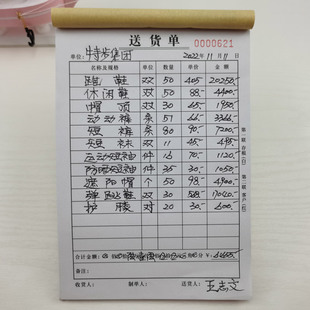 送货单
0000621
单位：特步集团 2022年11月11日
名称及规格 单位 数量 单价 金额
跑鞋 双 50 405 20250.-
休闲鞋 双 50 88.- 4400.-
帽 顶 30 65.- 1950.-
运动裤 条 51 66.- 3366.-
短裤 条 80 90.- 7200.-
短袜 双 11 45.- 495.-
运动短袖 件 16 70.- 1120.-
防晒短袖 件 35 30.- 1050.-
遮阳帽 个 50 98.- 4900.-
弹跳鞋 双 30 568.- 17040.-
护膝 对 20 30.- 600.-
合计金额：
备注：
收货人： 制单人： 送货人：王志文